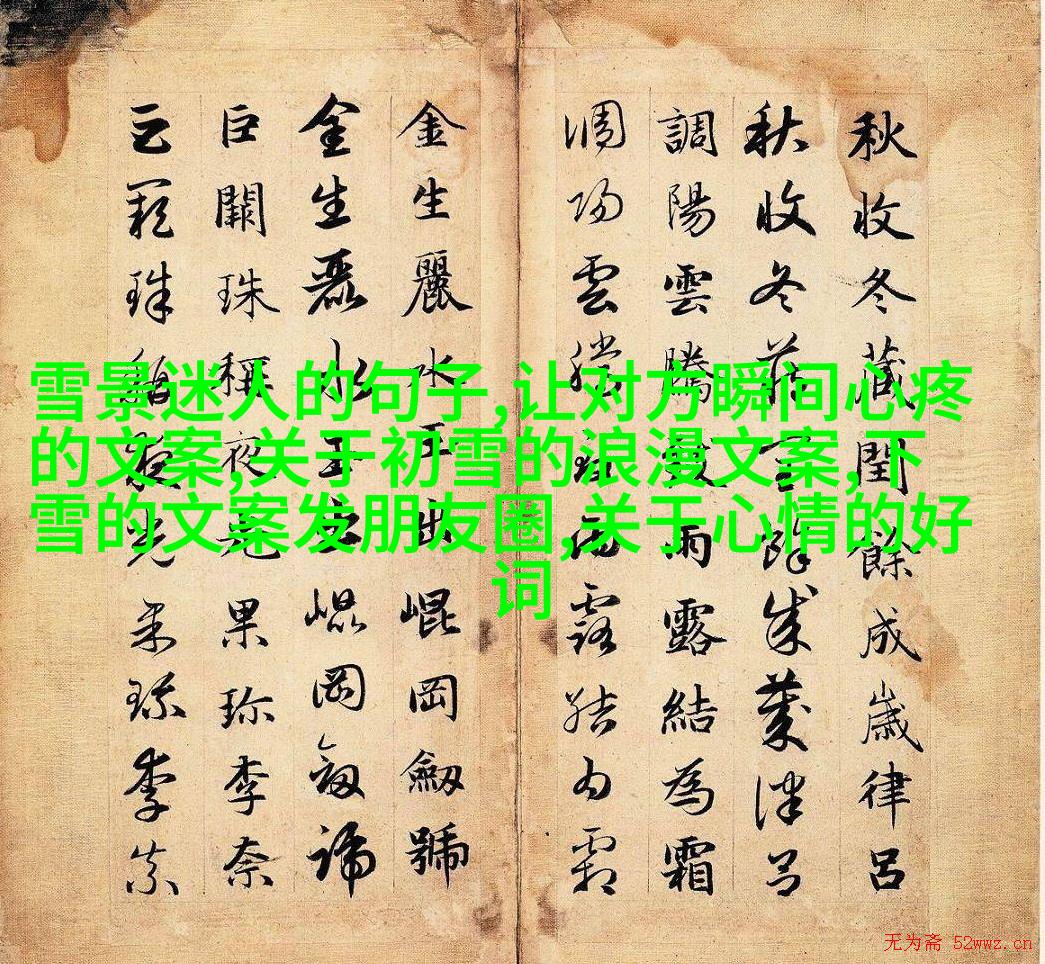 雪景迷人的句子,让对方瞬间心疼
的文案,关于初雪的浪漫文案,下
雪的文案发朋友圈,关于心情的好
词
秋收冬藏閏餘成歲律呂
秋收冬藏閏餘成歲律呂
調陽雲騰致雨露結為霜
調陽雲騰致雨露結為霜
金生麗水玉出崐岡劔號
金生麗水玉出崐岡劔號
巨闕珠稱夜光果珍李柰
巨闕珠稱夜光果珍李柰
无为斋 52wwz.cn